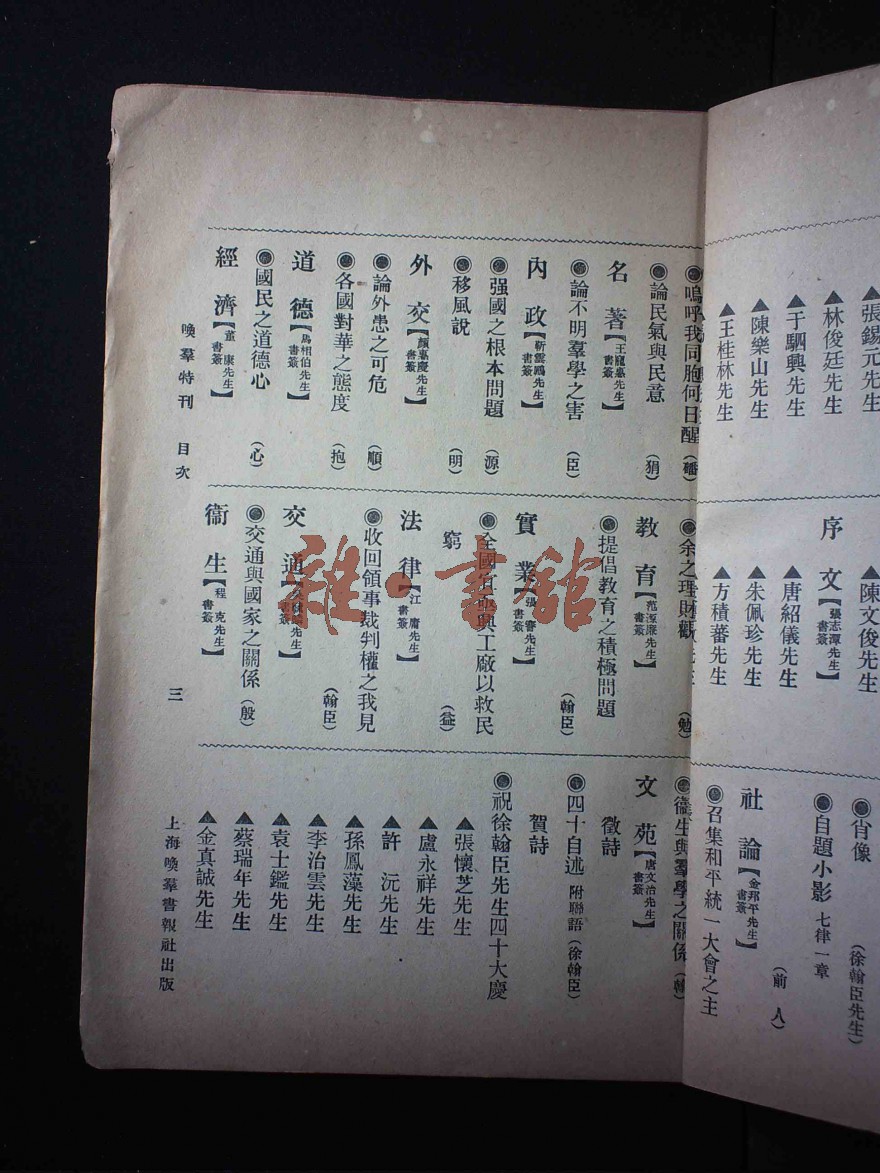 張錫元先生
▲林俊廷先生
▲于駟興先生
▲陳樂山先生
▲王桂林先生
▲陳文俊先生
序文【張志潭先生書簽】
▲唐紹儀先生
▲朱佩珍先生
▲方積蕃先生
◉肖像（徐翰臣先生）
◉自題小影 七律一章（前人）
社論【金邦平先生書簽】
◉召集和平統一大會之主
◉嗚呼我同胞何日醒
◉論民氣與民意（狷）
名著【王寵惠先生書簽】
◉論不明羣學之害（臣）
內政【靳雲鵬先生書簽】
◉强國之根本問題（源）
◉移風說（明）
外交【顏惠慶先生書簽】
◉論外患之可危（順）
◉各國對華之態度（抱）
道德【馬相伯先生書簽】
◉國民之道德心（心）
經濟【董康先生書簽】
◉余之理財觀（勉）
教育【范源廉先生書簽】
◉提倡教育之積極問題（翰臣）
實業【張謇先生書簽】
◉全國宜亟興工廠以救民
窮（益）
法律【江庸先生書簽】
◉收回領事裁判權之我見（翰臣）
交通【先生書簽】
◉交通與國家之關係（殷）
衞生【程克先生書簽】
◉衞生與羣學之關係
文苑【唐文治先生書簽】
徵詩
◉四十自述 附聯語（徐翰臣）
賀詩
◉祝徐翰臣先生四十大慶
▲張懷芝先生
▲盧永祥先生
▲許沅先生
▲孫鳳藻先生
▲李治雲先生
▲袁士鑑先生
▲蔡瑞年先生
▲金真誠先生
喚羣特刊 目次
三
上海喚羣書報社出版
雜·書館